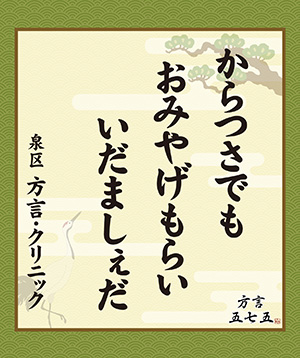 からつさでも
おみやげもらい
いだましぇだ
泉区 方言・クリニック
方言
五七五